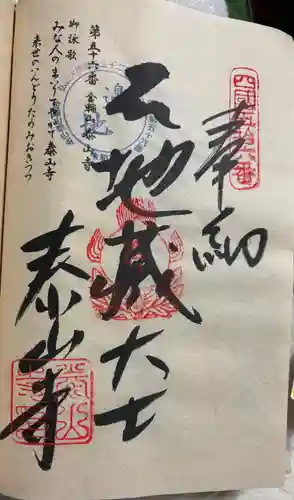 四国第五十六番
奉納
地蔵大士
泰山寺
第五十六番 金輪山泰山寺
御詠歌
みな人のまいりて
泰山寺
来世のいんどうたのみおきつつ